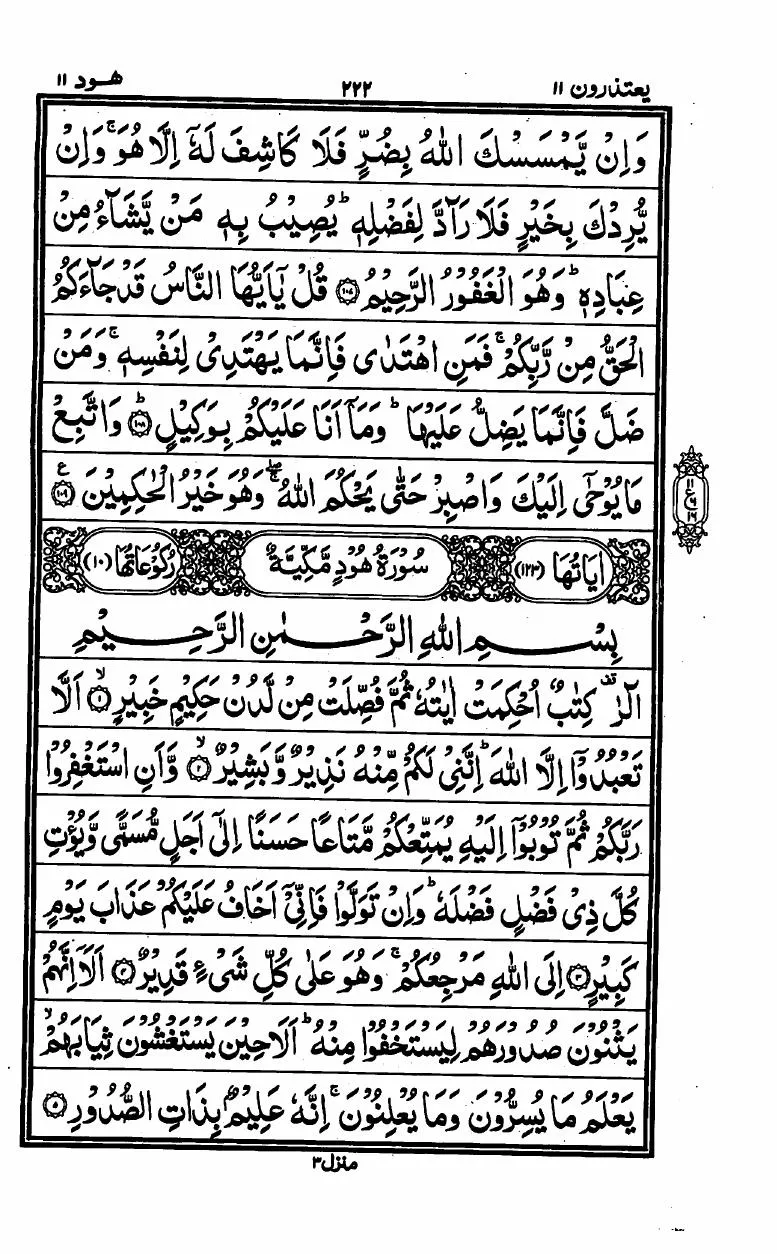 يعتذرون ١١
٢٢٢
هود ١١
وَاِنْ يَّمْسَسْكَ اللّٰهُ بِضُرٍّ فَلَا كَاشِفَ لَهٗۤ اِلَّا هُوَ ۚ وَاِنْ
يُّرِدْكَ بِخَيْرٍ فَلَا رَآدَّ لِفَضْلِهٖ ؕ يُصِيْبُ بِهٖ مَنْ يَّشَآءُ مِنْ
عِبَادِهٖ ؕ وَهُوَ الْغَفُوْرُ الرَّحِيْمُ ﴿۱۰۷﴾ قُلْ يٰۤاَيُّهَا النَّاسُ قَدْ جَآءَكُمُ
الْحَقُّ مِنْ رَّبِّكُمْ ۚ فَمَنِ اهْتَدٰى فَاِنَّمَا يَهْتَدِىْ لِنَفْسِهٖ ۚ وَمَنْ
ضَلَّ فَاِنَّمَا يَضِلُّ عَلَيْهَا ؕ وَمَاۤ اَنَا عَلَيْكُمْ بِوَكِيْلٍ ؕ﴿۱۰۸﴾ وَاتَّبِعْ
مَا يُوْحٰۤى اِلَيْكَ وَاصْبِرْ حَتّٰى يَحْكُمَ اللّٰهُ ۖۚ وَهُوَ خَيْرُ الْحٰكِمِيْنَ ﴿۱۰۹﴾ ع
١١
ع
١٦
اٰيَاتُهَا (١٢٣) سُوْرَةُ هُوْدٍ مَّكِّيَّةٌ رُكُوْعَاتُهَا (١٠)
بِسْمِ اللّٰهِ الرَّحْمٰنِ الرَّحِيْمِ
الٓرٰ ࣞ كِتٰبٌ اُحْكِمَتْ اٰيٰتُهٗ ثُمَّ فُصِّلَتْ مِنْ لَّدُنْ حَكِيْمٍ خَبِيْرٍ ۙ﴿۱﴾ اَلَّا
تَعْبُدُوْۤا اِلَّا اللّٰهَ ؕ اِنَّنِىْ لَكُمْ مِّنْهُ نَذِيْرٌ وَّبَشِيْرٌ ۙ﴿۲﴾ وَّاَنِ اسْتَغْفِرُوْا
رَبَّكُمْ ثُمَّ تُوْبُوْۤا اِلَيْهِ يُمَتِّعْكُمْ مَّتَاعًا حَسَنًا اِلٰۤى اَجَلٍ مُّسَمًّى وَّيُؤْتِ
كُلَّ ذِىْ فَضْلٍ فَضْلَهٗ ؕ وَاِنْ تَوَلَّوْا فَاِنِّىْۤ اَخَافُ عَلَيْكُمْ عَذَابَ يَوْمٍ
كَبِيْرٍ ﴿۳﴾ اِلَى اللّٰهِ مَرْجِعُكُمْ ۚ وَهُوَ عَلٰى كُلِّ شَىْءٍ قَدِيْرٌ ﴿۴﴾ اَلَاۤ اِنَّهُمْ
يَثْنُوْنَ صُدُوْرَهُمْ لِيَسْتَخْفُوْا مِنْهُ ؕ اَلَا حِيْنَ يَسْتَغْشُوْنَ ثِيَابَهُمْ ۙ
يَعْلَمُ مَا يُسِرُّوْنَ وَمَا يُعْلِنُوْنَ ۚ اِنَّهٗ عَلِيْمٌۢ بِذَاتِ الصُّدُوْرِ ﴿۵﴾
منزل ٣